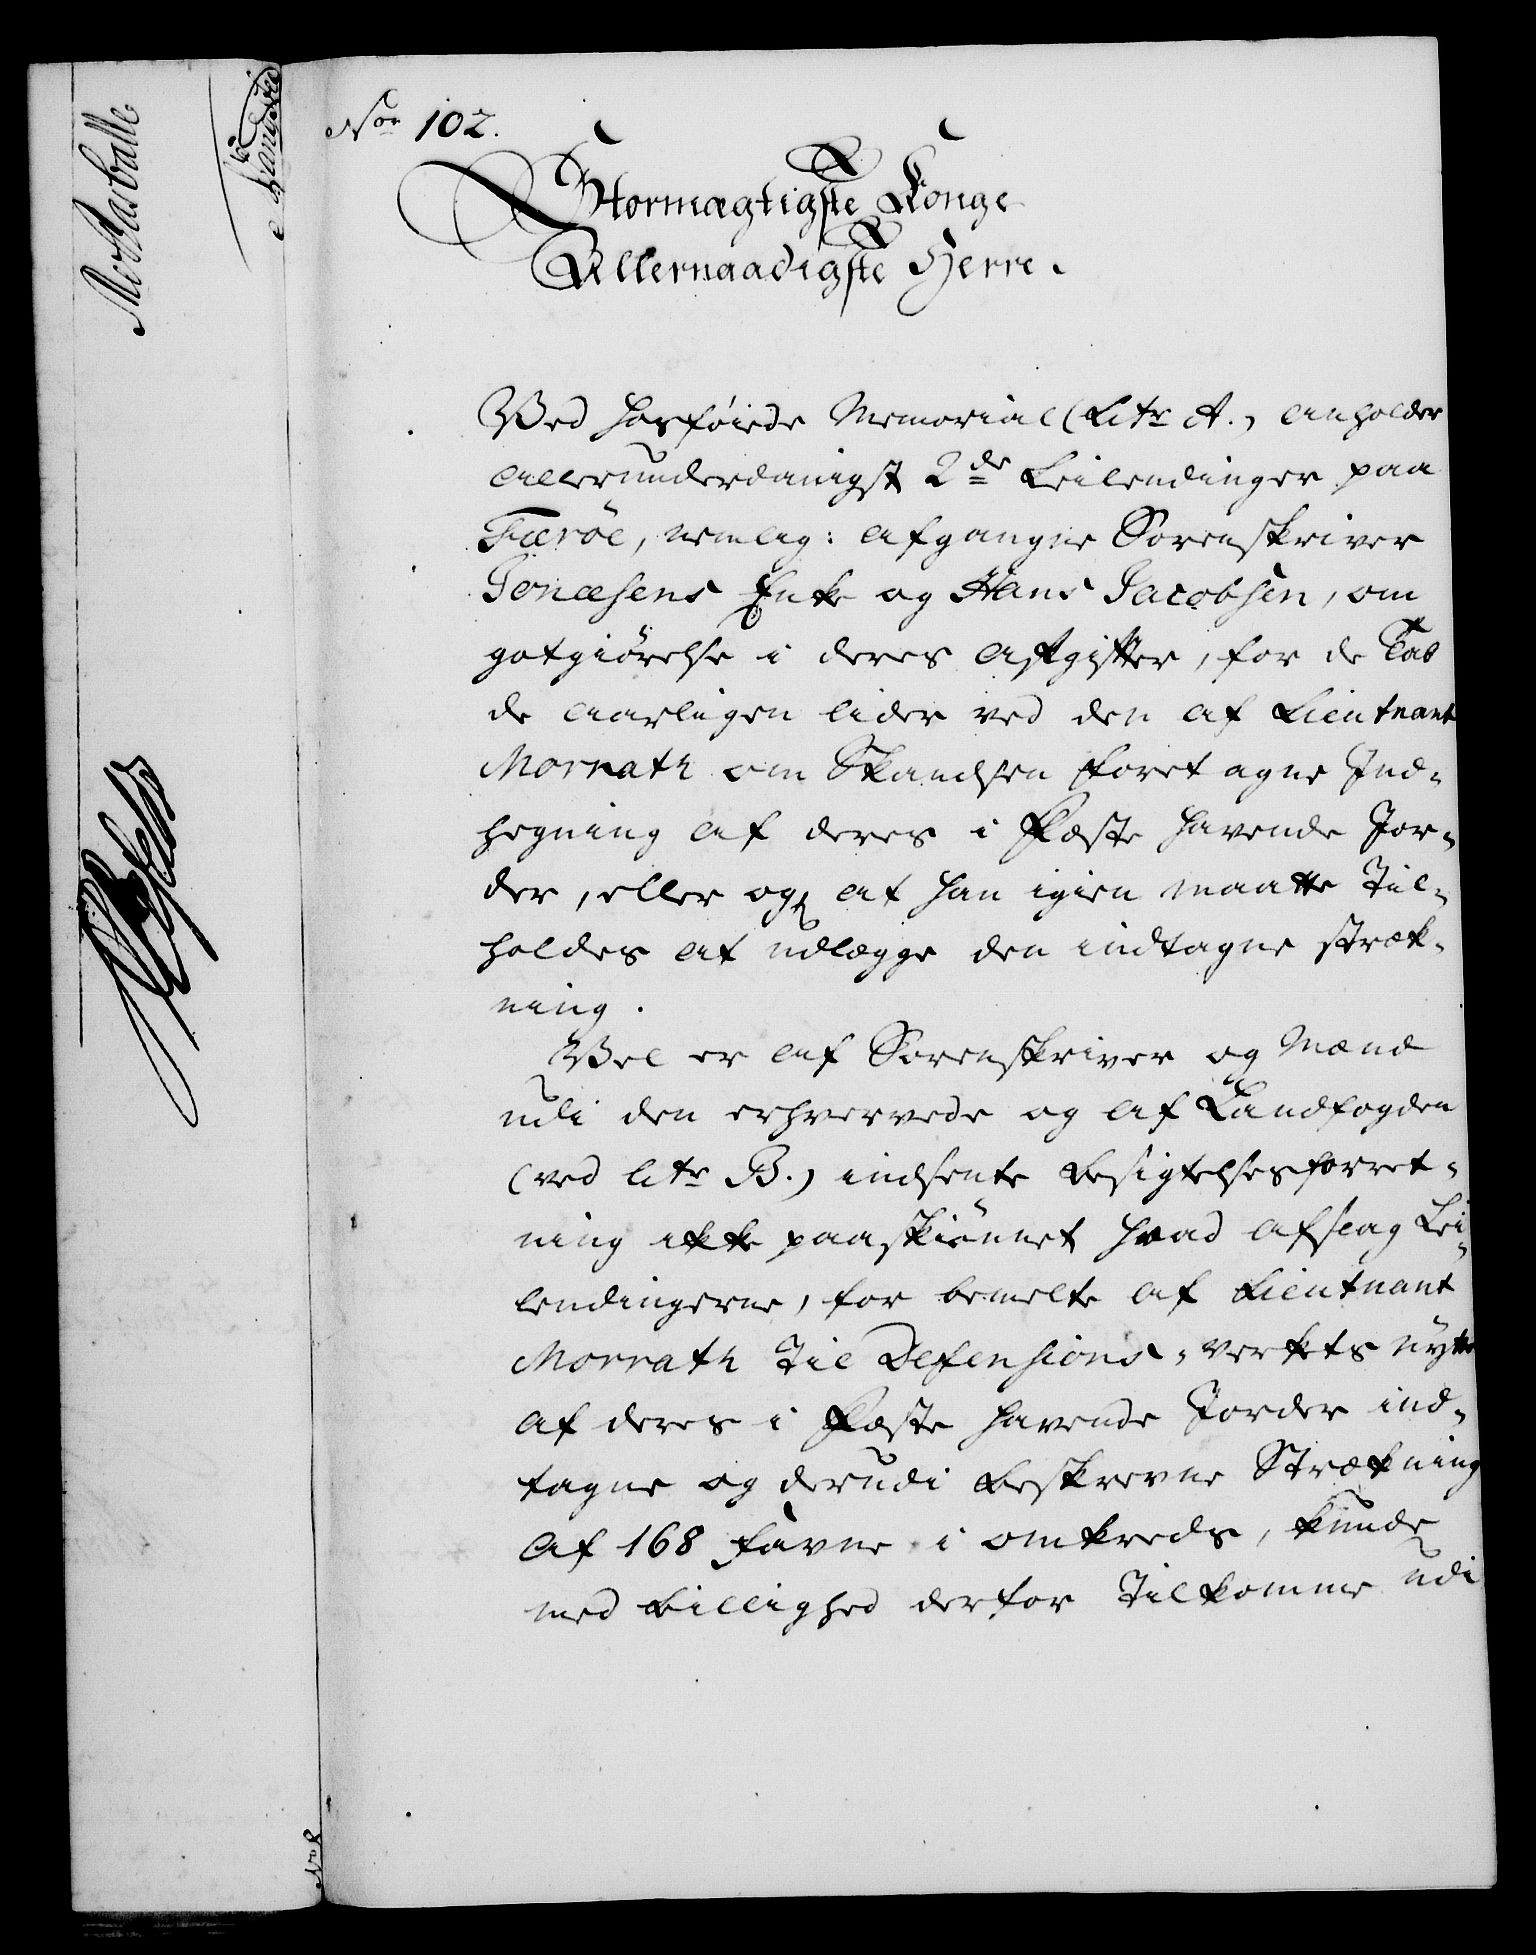 Nor 102.
Stormægtigste Konge
Allernaadigste Herre.
Ved hosføiede Memorial (Litr A.) anholder
allerunderdanigst 2de Leilendinger paa
Færöe, nemlig: afgangne Sorenskriver
Jonæsens Enke og Hans Jacobsen, om
gotgiörelse i deres Afgifter, for de Tab
de aarligen lider ved den af Lieutnant
Morrath om Skandsen foretagne Ind-
hegning af deres i Fæste havende Jor-
der, eller og, at han igien maatte Til-
holdes at udlægge den indtagne stræk-
ning.
Vel er af Sorenskriver og Mænd
udi den erhvervede og af Landfogden
(ved litr B.) indsente Besigtelsesforret-
ning ikke paaskiönnet hvad afslag Lei-
lendingerne, for bemelte af Lieutnant
Morrath til Defensions-verkets nytte
af deres i Fæste havende Jorder ind-
tagne og derudi beskrevne Strækning
af 168 Favne i omkreds, kunde
med Billighed derfor Tilkomme udi